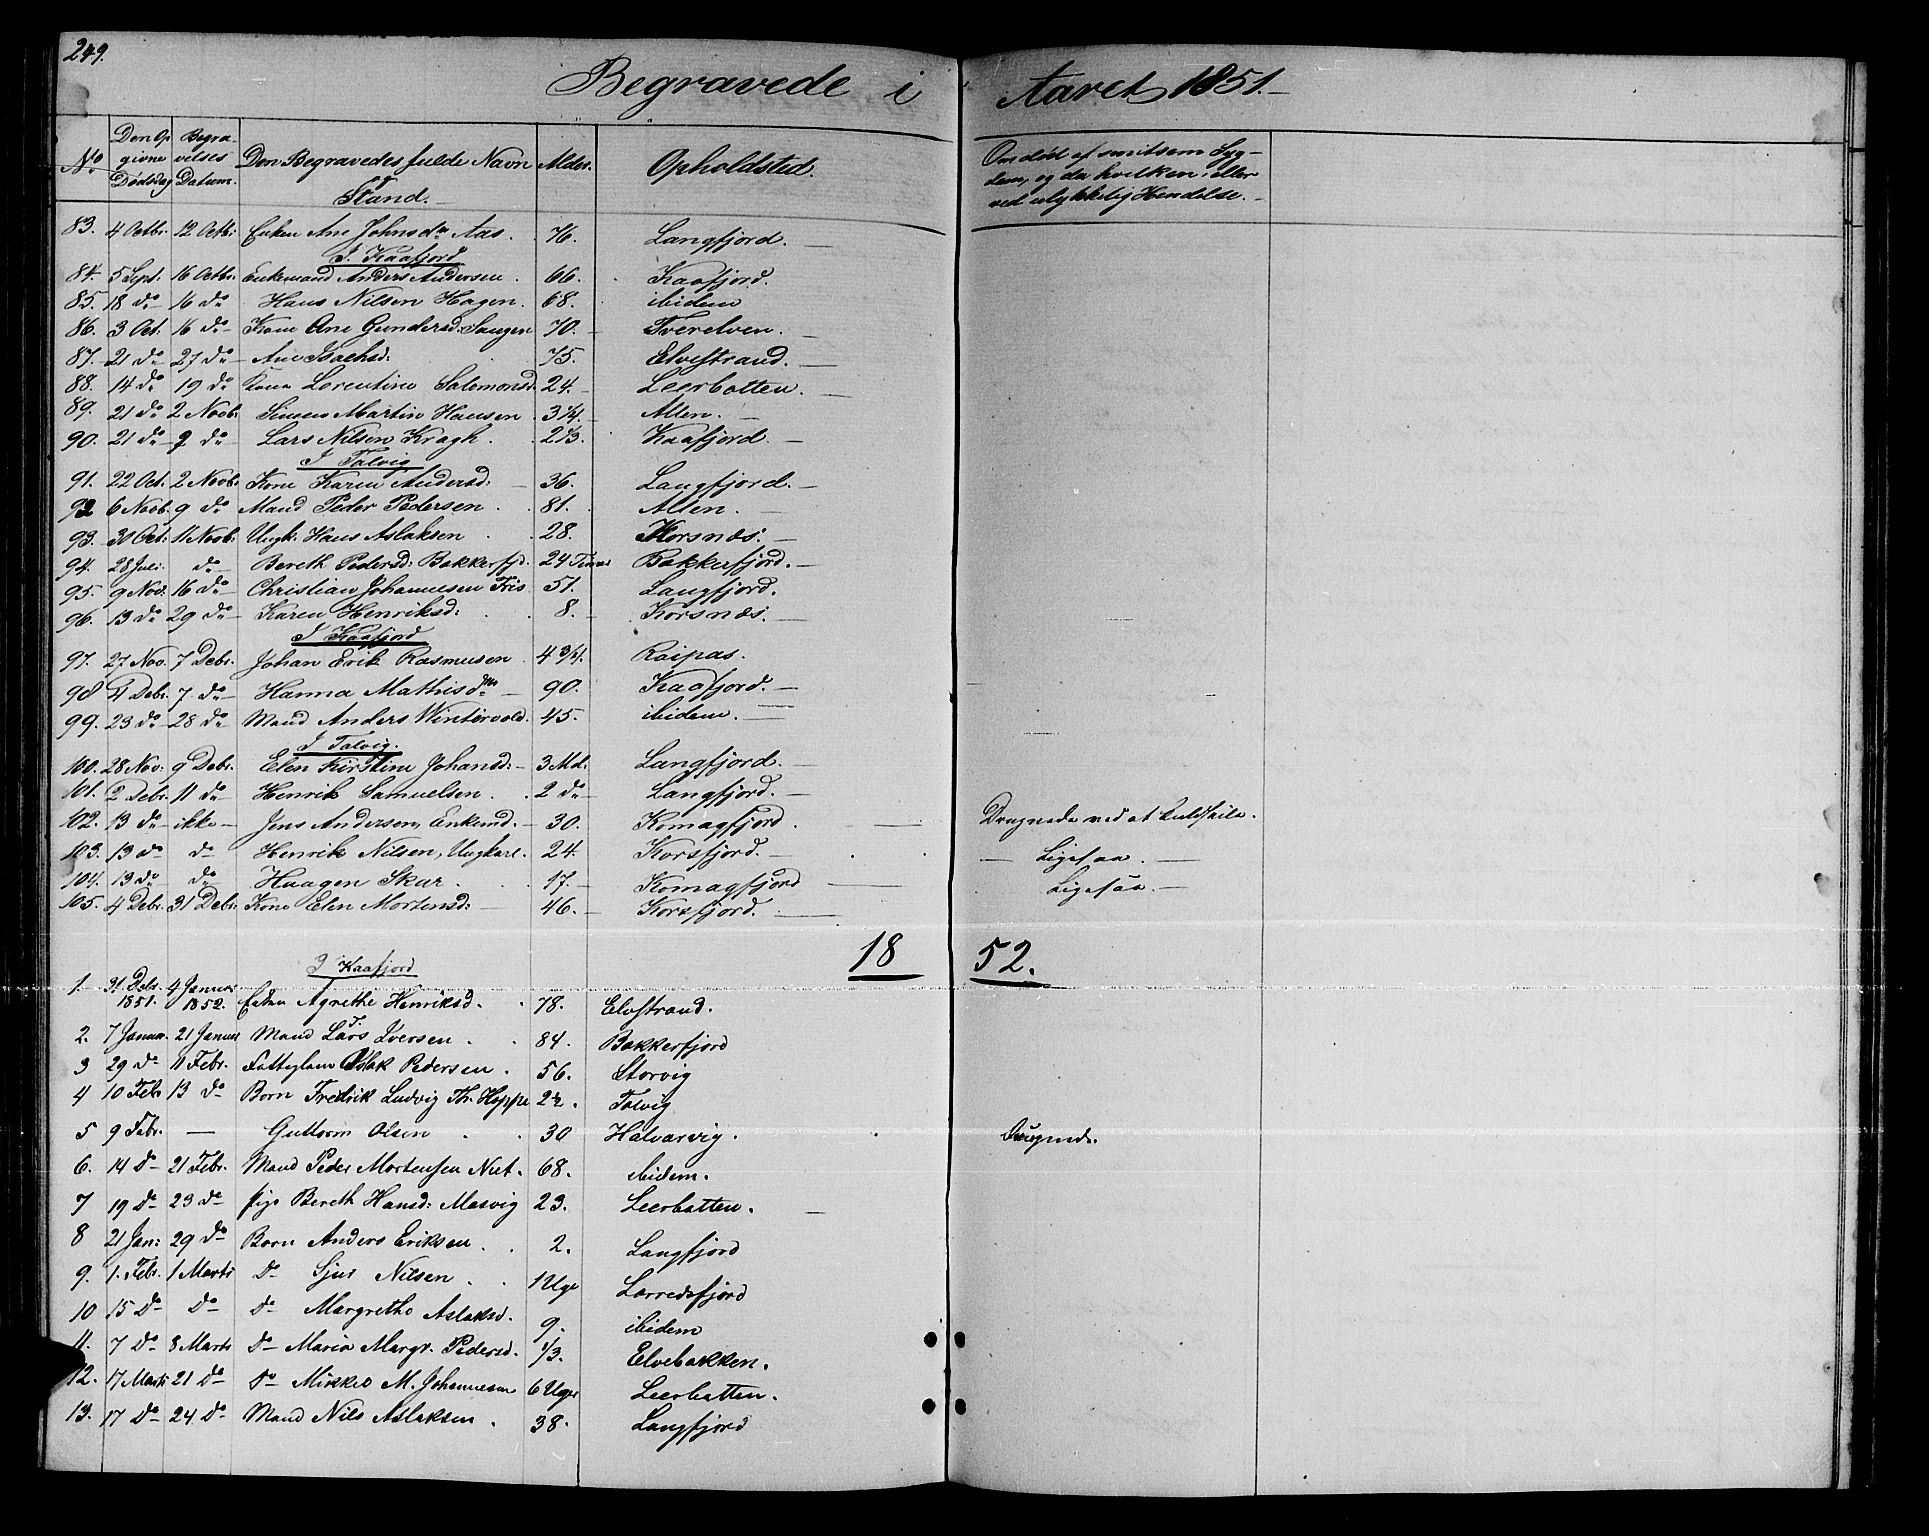 249.
Begravede i Aaret 1851.
No. Den Opgivne Dødsdag Begravelses Datum. Den Begravedes fulde Navn og Stand. Alder. Opholdsted. Om død af smitsom Sygdom, og da hvilken, eller ved ulykkelig Hendelse.
83. 4 Octbr. 12 Octbr: Enken Ane Johnsdr Aas. 76. Langfjord.
I Kaafjord
84. 5 Sept: 16 Octbr. Enkemand Anders Andersen. 66. Kaafjord.
85. 18 do 16 do Hans Nilsen Hagen. 68. ibidem
86. 3 Oct. 16 do Kone Ane Gundersd: 70. Tverelven.
87. 21 do 27 do Ane Isachsd: 75. Elvestrand.
88. 14 do 19 do Kone Lorentine Salomonsd. 24. Leerbotten.
89. 21 do 2 Novb. Simon Martin Hansen. 3 1/4. Alten.
90. 21 do 2 do Lars Nilsen Kragh. 2 1/3. Kaafjord.
I Talvig
91. 22 Oct. 2 Novb. Kone Karen Andersd: 36. Langfjord.
92 6 Novb. 9 do Mand Peder Pedersen. 81. Alten.
93. 30 Oct. 11 Novb. Ungk: Hans Aslaksen 28. Korsnæs.
94. 28 Juli. do Bereth Pedersd: Bakkerfjd. 24 Timer Bakkerfjord.
95. 9 Nov. 16 do Christian Johannesen Friis 51. Langfjord.
96. 13 do 29 do Karen Henriksd: 8. Korsnæs.
I Kaafjord
97. 27 Nov. 7 Debr. Johan Erik Rasmusen. 4 3/4. Raipas.
98 4 Debr. 7. do Hanna Mathisdr 90. Kaafjord.
99. 23 do 28 do Mand Anders Wintervold. 45. ibidem.
I Talvig.
100. 28 Nov: 9 Debr. Elen Kirstine Johansd: 3 Md. Langfjord.
101. 2 Debr. 11 do Henrik Samuelsen. 2 do Langfjord.
102. 13 do ikke Jens Andersen, Enkemd. 30. Komagfjord. Drugnede ved at kuldseile.
103. 13 do do Henrik Nilsen, Ungkarl. 24. Korsfjord. Ligesaa.
104. 13 do do Haagen Skar. 17. Komagfjord Ligesaa.
105. 4 Debr. 31 Debr: Kone Elen Mortensd: 46. Korsfjord.
1852.
I Kaafjord
1. 31 Debr. 1851. 4 Januar 1852. Enken Agrethe Henriksd. 78. Elvestrand.
2. 7 Januar. 21 Januar Mand Lars T. Iversen. 84. Bakkerfjord
3 29 do 11 Febr. Fattiglem Aslak Pedersen. 56. Storvig
4 10 Febr 13 do Barn Fredrik Ludvig Th. Hoppe 2 1/2. Talvig
5 9 Febr. — Guttorm Olsen. 30 Halvarvig. Drugnede.
6. 14 Do 21 Febr. Mand Peder Mortensen 68. ibidem.
7 19 Do 23 do Pige Bereth Hansd: Masvig 23. Leerbotten.
8 21 Jan: 29 do Barn Anders Eriksen. 2. Langfjord
9. 1. Febr. 1 Marts Do Sjur Nilsen. 1 Uge Lerredsfjord
10 15 Do Do Do Margrethe Aslaksd. 9. ibidem
11. 7 Do 8 Marts Do Maria Margr. Pedersd. 1/3. Elvebakken.
12. 17 Marts 21 Do Do Mikkel M. Johannesen 6 Uger Leerbotten.
13. 17 Do 24 Do Mand Nils Aslaksen. 38. Langfjord